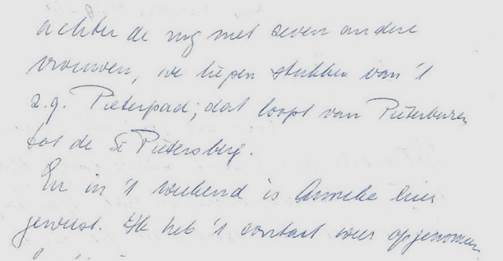 achter de rug met zeven andere
vrouwen, we liepen stukken van 't
z.g. Pieterpad; dat loopt van Pieterburen
tot de St Pietersberg.
En in 't weekend is Anneke hier
geweest. Ik heb 't contact weer opgenomen